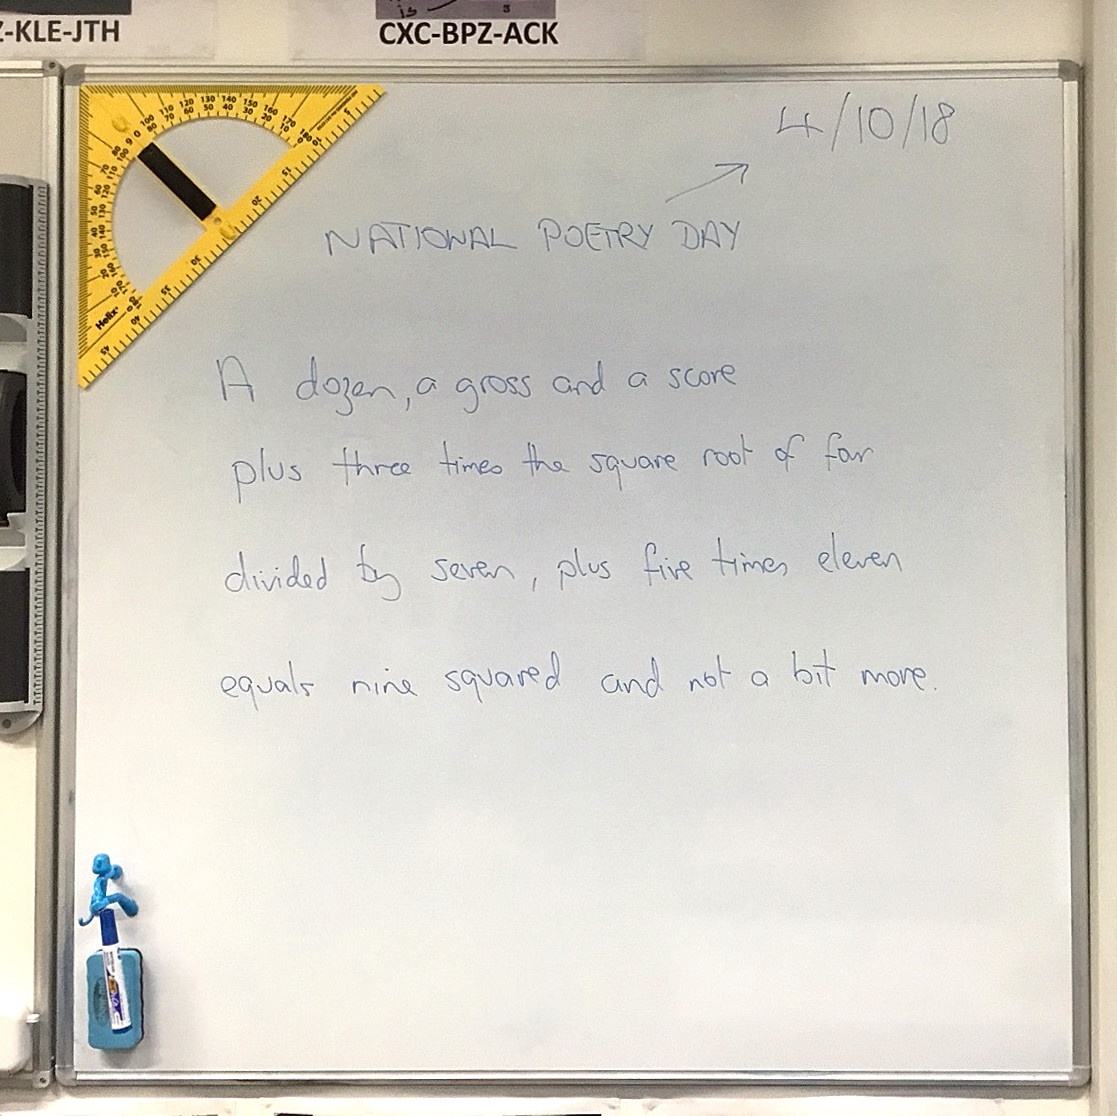 -KLE-JTH
is
CXC-BPZ-ACK
4/10/18
NATIONAL POETRY DAY
Helix
A dozen, a gross and a score
plus three times the square root of four
divided by seven, plus five times eleven
equals nine squared and not a bit more.